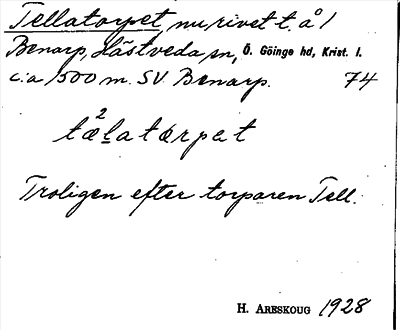 Tellatorpet, nu rivet t. å 1
Benarp, Hästveda sn, Ö. Göinge hd, Krist. l.
c:a 1500 m. SV Benarp. 74
tæ²latɷrpet
Troligen efter torparen Tell.
H. ARESKOUG 1928